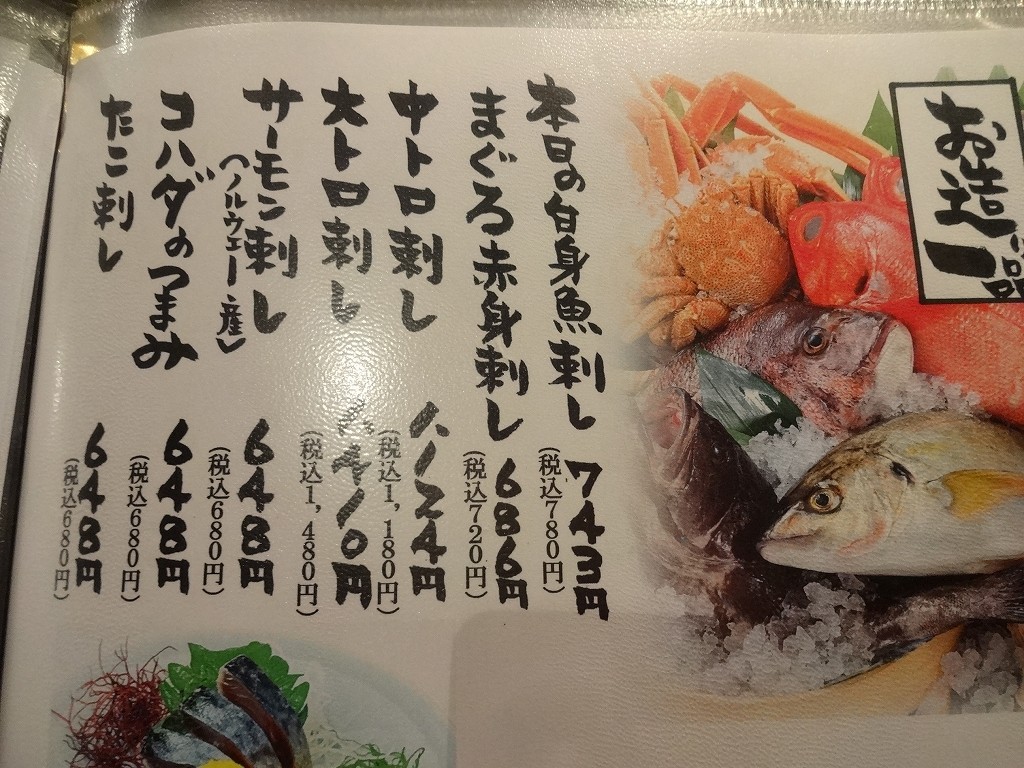 お造り一品
本日の白身魚刺し 743円
(税込780円)
まぐろ赤身刺し 686円
(税込720円)
中トロ刺し 1,124円
(税込1,180円)
大トロ刺し 1,410円
(税込1,480円)
サーモン刺し 648円
(ノルウェー産)
(税込680円)
コハダのつまみ 648円
(税込680円)
たこ刺し 648円
(税込680円)